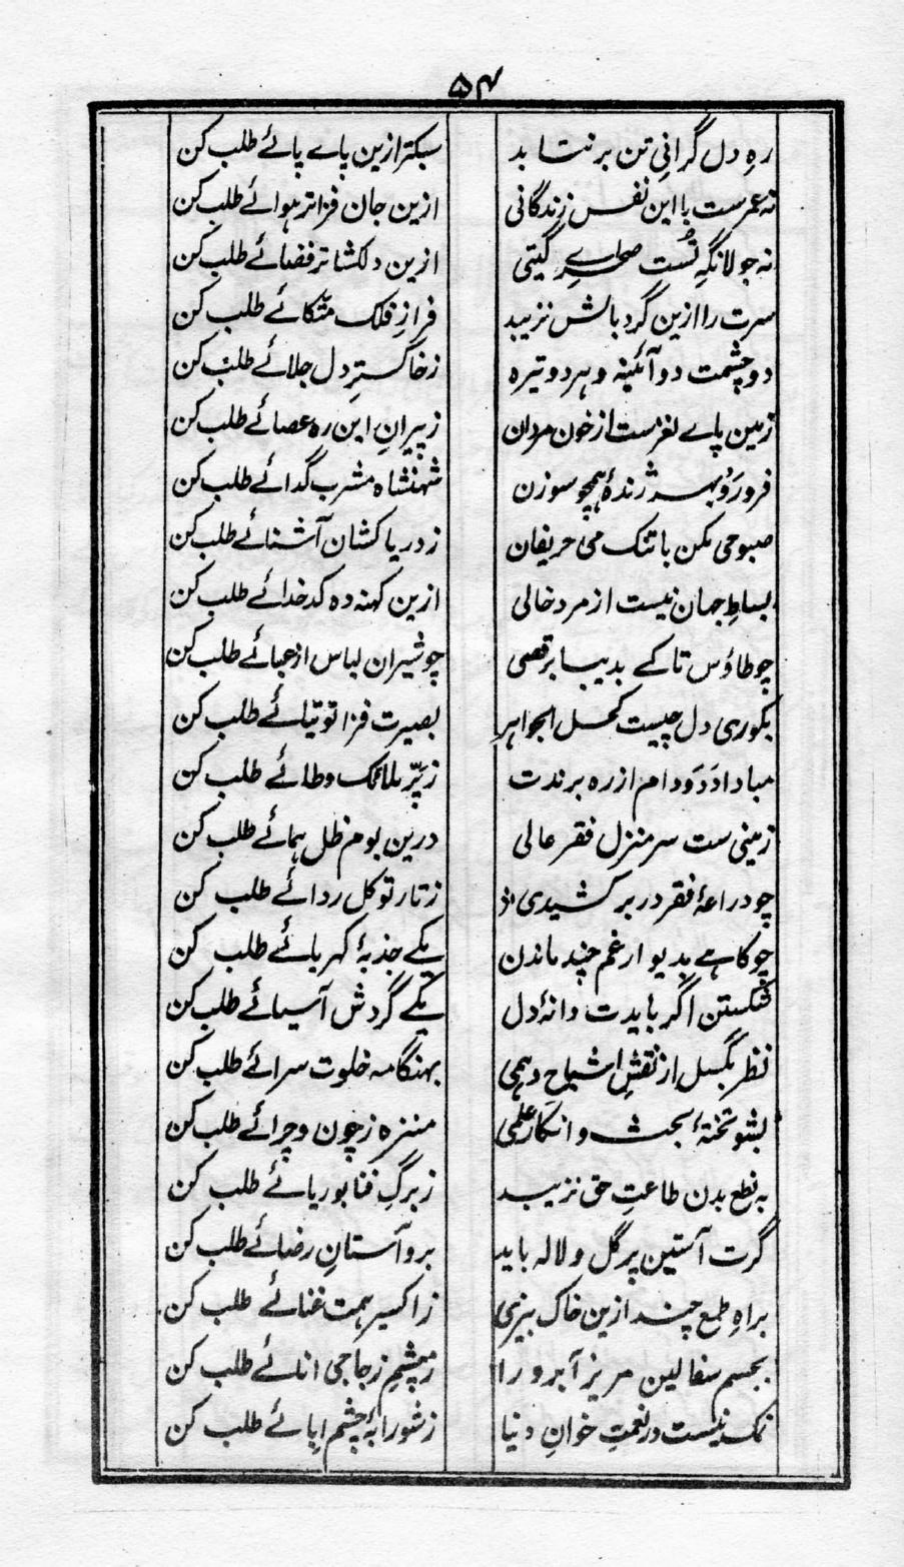 ۵۴
رہِ دل گرانیِ تن بر نتابد سبکتر ازین پاے پائے طلب کن
نہ عمرست با این نفس زندگانی ازین جان فزاتر ہوائے طلب کن
نہ جولانگہِ تُست صحراے گیتی ازین دلکشاتر فضائے طلب کن
سرت را ازین گرد بالش نزیبد فرازِ فلک متّکائے طلب کن
دو چشمت دو آئینہ و ہر دو تیرہ ز خاکسترِ دل جلائے طلب کن
زمین پاے لغزست از خون مردان ز پیرانِ این رہ عصائے طلب کن
فرو رَو بہر ژندۂ ہمچو سوزن شہنشاہ مشرب گدائے طلب کن
صبوحی مکن با تنک می حریفان ز دریا کشان آشنائے طلب کن
بساطِ جہان نیست از مرد خالی ازین کہنہ دہ کدخدائے طلب کن
چو طاؤس تا کے بدیبا برقصی چو شیران لباس از عبائے طلب کن
بکوری دل چیست کحل الجواہر بصیرت فزا توتیائے طلب کن
مبادا دَد و دام از رہ برندت ز پرِّ ملائک وطائے طلب کن
زمینی ست سر منزل فقر عالی درین بوم ظل ہمائے طلب کن
چو دراعۂ فقر در بر کشیدی ز تار توکل ردائے طلب کن
چو کاہے بدیوار غم چند ماندن یکے جذبۂ کہربائے طلب کن
شکستن اگر بایدت دانۂ دل یکے گردش آسیائے طلب کن
نظر بگسل از نقشِ اشباح وہمی بہنگامہ خلوت سرائے طلب کن
بشو تختۂ بحث و انکار علمی منزہ ز چون و چرائے طلب کن
بہ نطع بدن طاعتِ حق نزیبد ز برگِ فنا بوریائے طلب کن
گرت آستین پر گل و لالہ باید برو آستانِ رضائے طلب کن
براہِ طمع چند ازین خاک بیزی ز اکسیر ہمت غنائے طلب کن
بجسم سفالین مریز آبرو را ز چشمِ زجاجی انائے طلب کن
نمک نیست در نعمتِ خوانِ دنیا ز شورابۂ چشم ابائے طلب کن